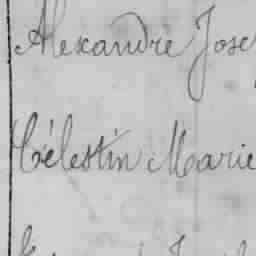 Alexandre Jose
Célestin Marie